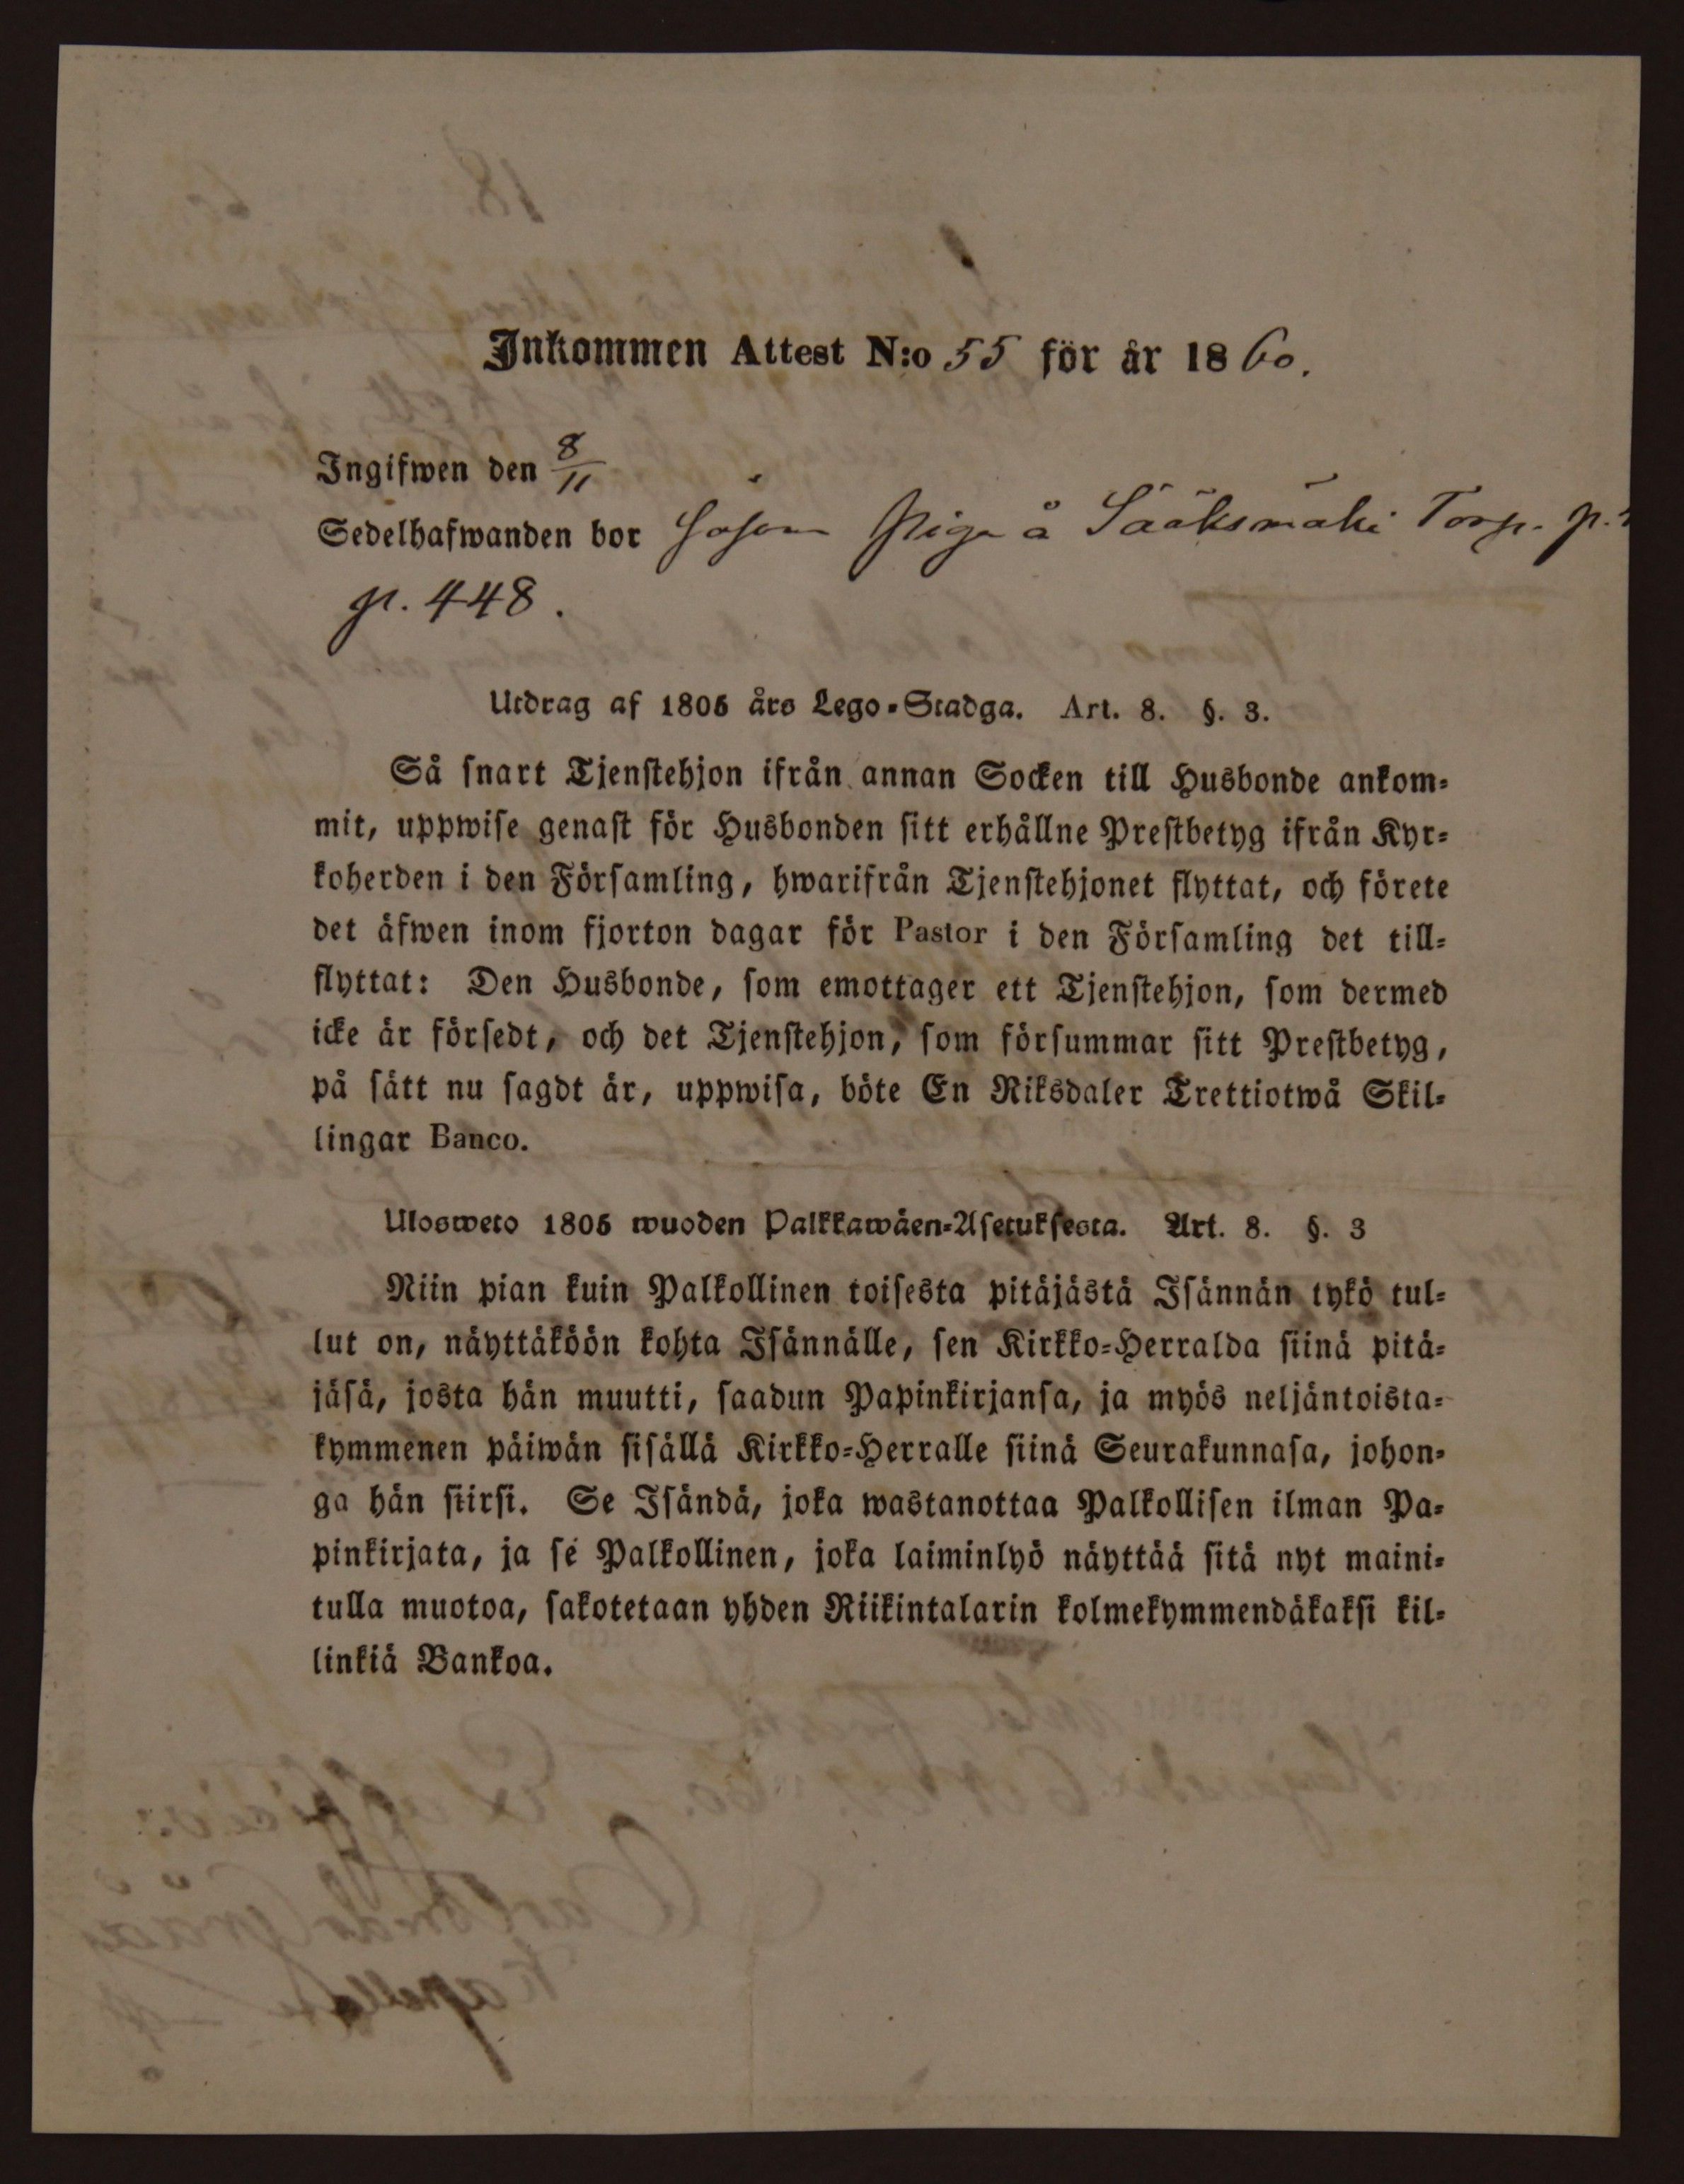 Inkommen Attest N:o 55 för år 1860.
Ingifwen den 8/11
Sedelhafwanden bor såsom Piga å Sääksmäki Torp. p.
p. 448.
Utdrag af 1805 års Lego-Stadga. Art. 8. §. 3.
Så snart Tjenstehjon ifrån annan Socken till Husbonde ankom-
mit, uppwise genast för Husbonden sitt erhållne Prestbetyg ifrån Kyr-
koherden i den Församling, hwarifrån Tjenstehjonet flyttat, och förete
det äfwen inom fjorton dagar för Pastor i den Församling det till-
flyttat: Den Husbonde, som emottager ett Tjenstehjon, som dermed
icke är försedt, och det Tjenstehjon, som försummar sitt Prestbetyg,
på sätt nu sagdt är, uppwisa, böte En Riksdaler Trettiotwå Skil-
lingar Banco.
Ulosweto 1805 wuoden Palkkawäen-Asetuksesta. Art. 8. §. 3
Niin pian kuin Palkollinen toisesta pitäjästä Isännän tykö tul-
lut on, näyttäköön kohta Isännälle, sen Kirkko-Herralda siinä pitä-
jäsä, josta hän muutti, saadun Papinkirjansa, ja myös neljäntoista-
kymmenen päiwän sisällä Kirkko-Herralle siinä Seurakunnasa, johon-
ga hän siirsi. Se Isändä, joka wastanottaa Palkollisen ilman Pa-
pinkirjata, ja se Palkollinen, joka laiminlyö näyttää sitä nyt maini-
tulla muotoa, sakotetaan yhden Riikintalarin kolmekymmendäkaksi kil-
linkiä Bankoa.